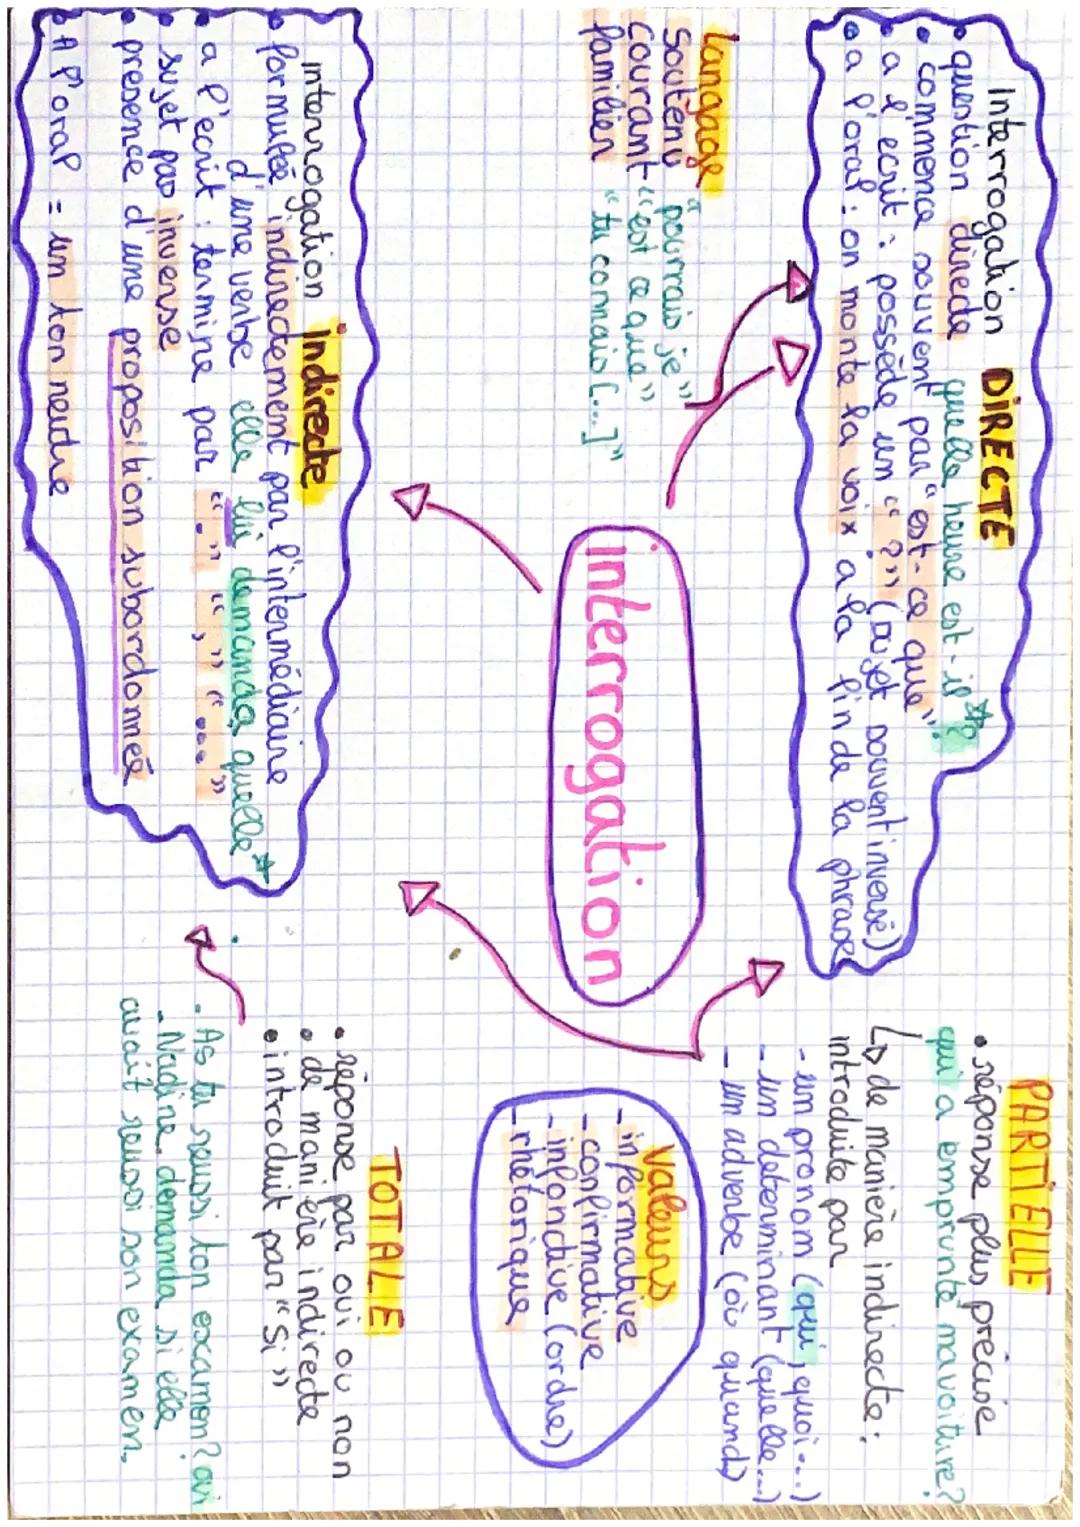 interrogation
Interrogation DIRECTE
• question directe quelle heure est-il*?
• commence souvent par "est-ce que"
• a l'ecrit : possède un "?" (sujet souvent inversé)
• a l'oral : on monte la voix a la fin de la phrase
Langage
soutenu "pourrais je"
courant "est ce que"
familier "tu connais [...]"
interrogation indirecte
• formulée indirectement par l'intermédiaire
d'une verbe elle lui demanda quelle*
• a l'ecrit : termine par "." "," "..."
• sujet pas inverse
• presence d'une proposition subordonnée
• A l'oral = un ton neutre
PARTIELLE
• réponse plus précise
qui a emprunté ma voiture?
↳ de manière indirecte :
introduite par
- un pronom (qui, quoi...)
- un determinant (quelle...)
- un adverbe (où quand)
Valeurs
- informative
- confirmative
- infonctive (ordre)
- rhétorique
TOTALE
• réponse par oui ou non
• de manière indirecte
• introduit par "Si"
. As tu reussi ton examen? oui
- Nadine demanda si elle
avait reussi son examen.